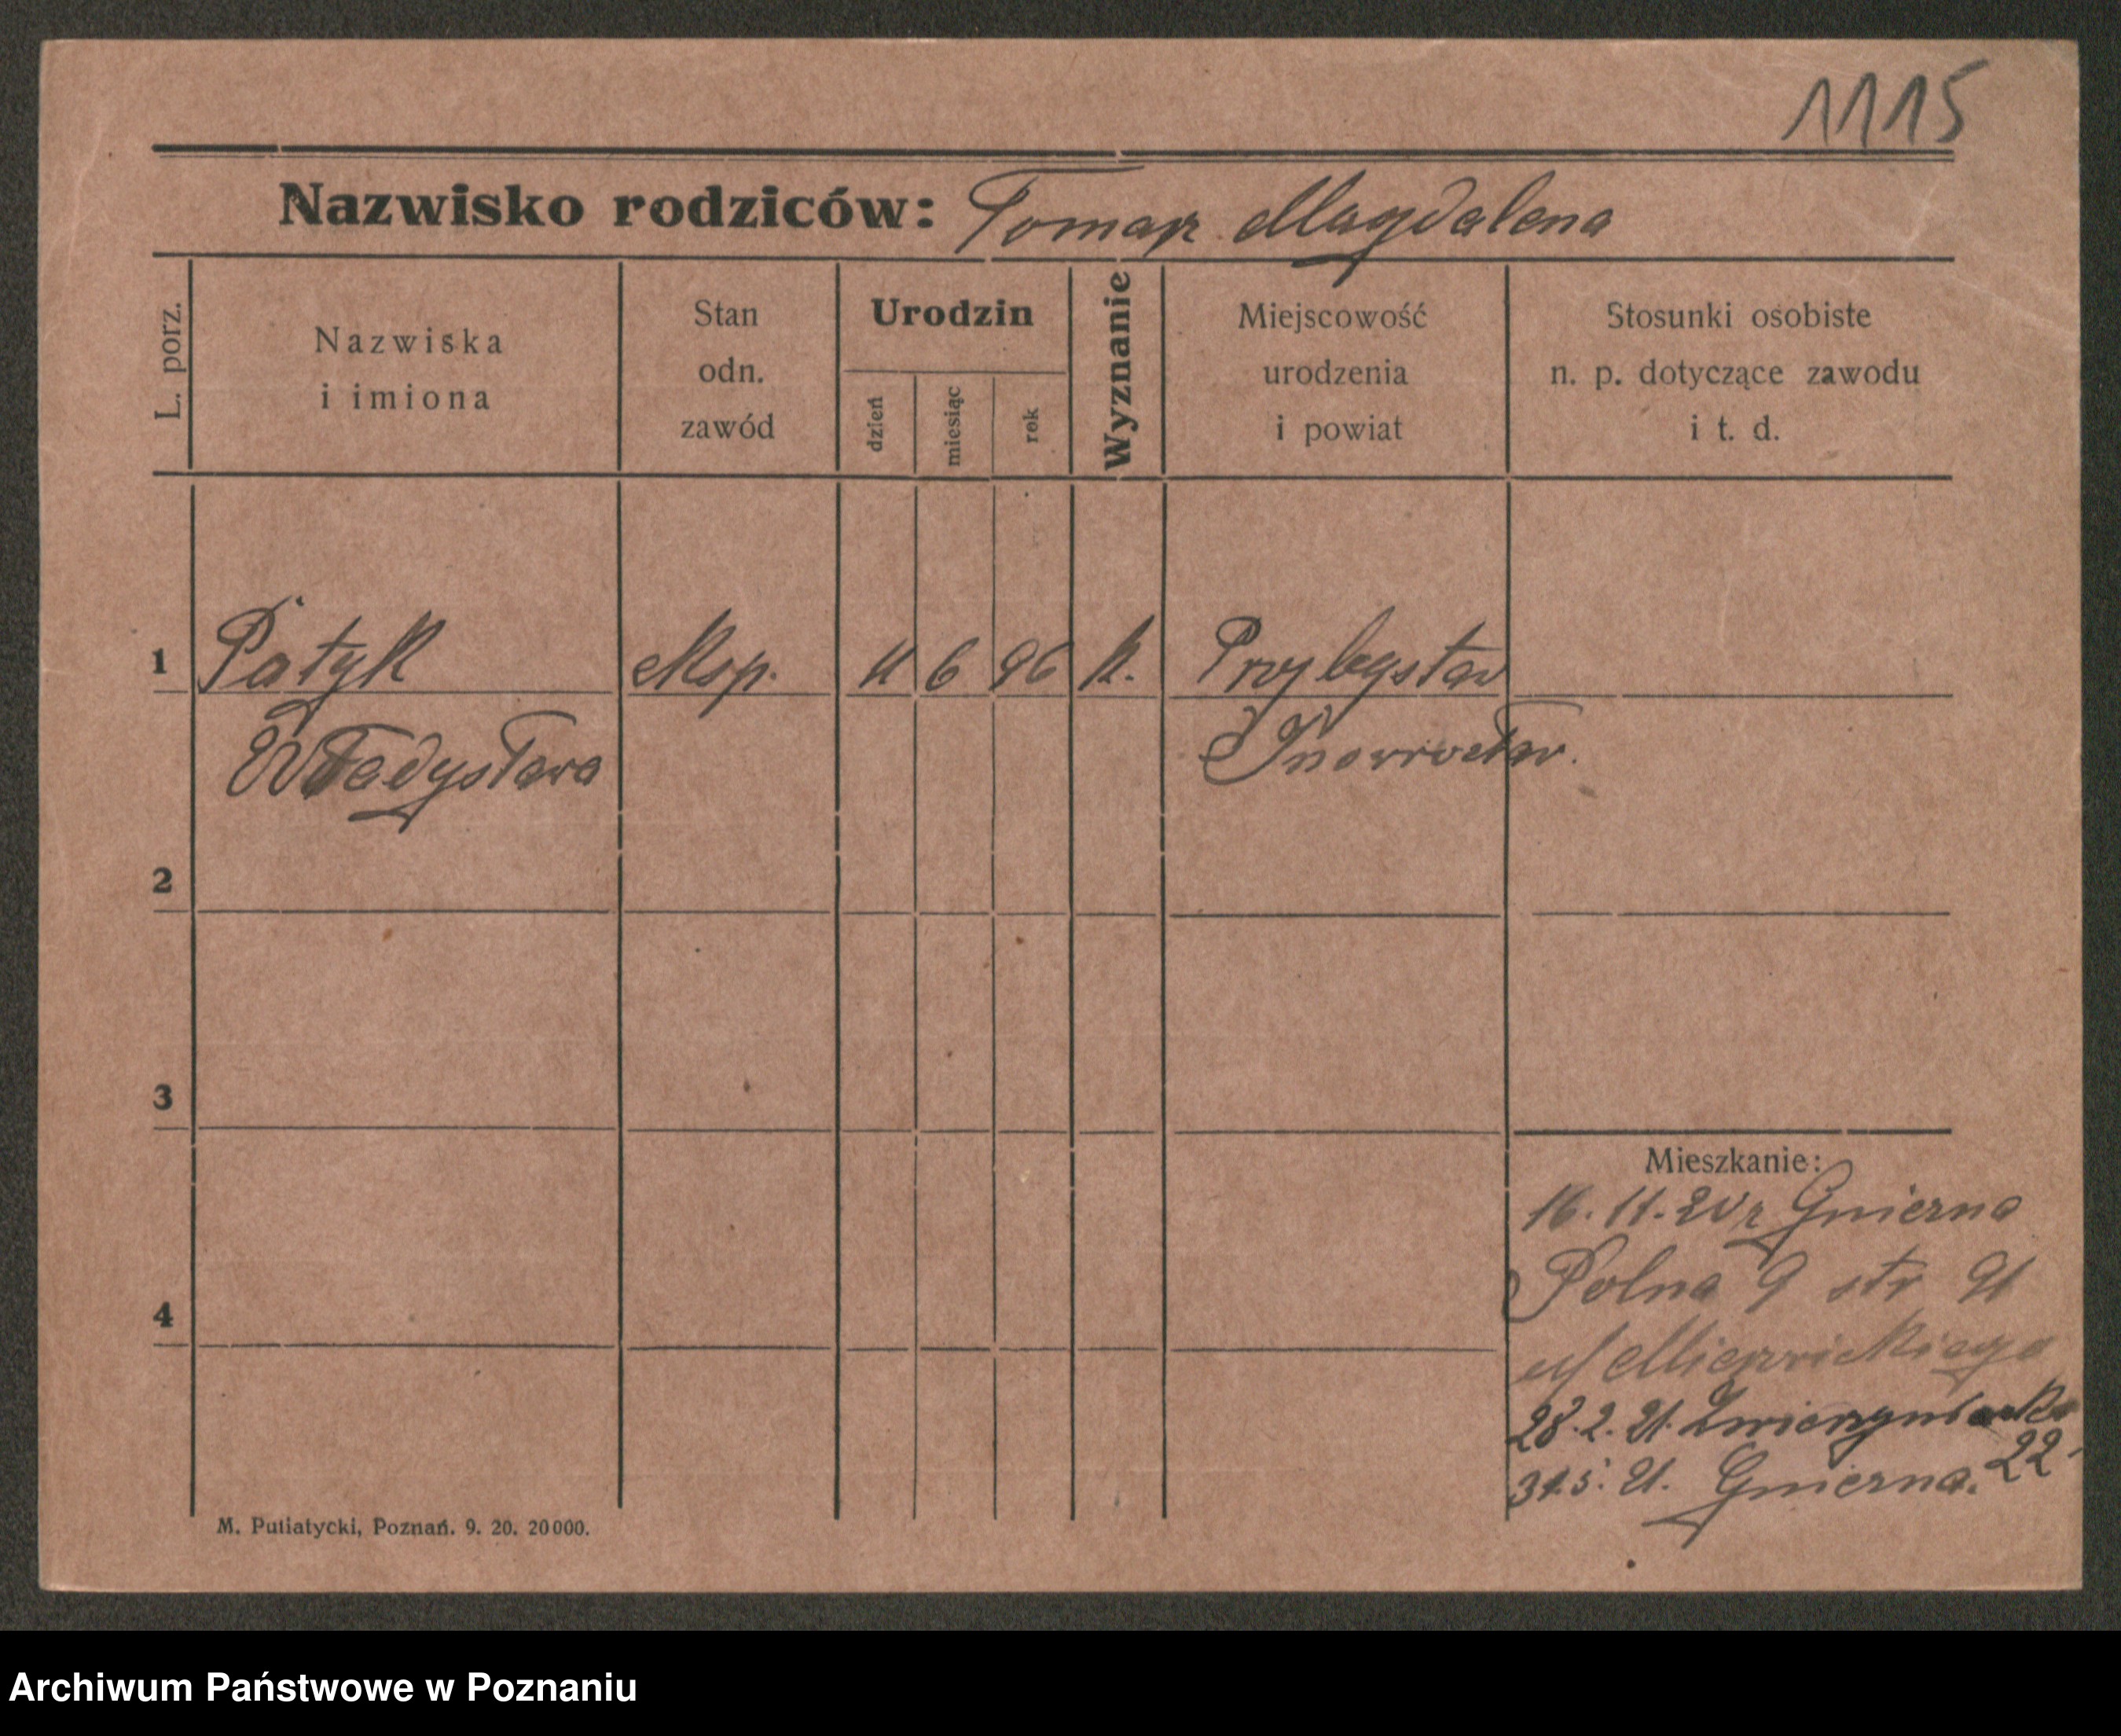 1115
Nazwisko rodziców: Tomasz Magdalena
L. porz.
Nazwiska
i imiona
Stan
odn.
zawód
Urodzin
dzień
miesiąc
rok
Wyznanie
Miejscowość
urodzenia
i powiat
Stosunki osobiste
n. p. dotyczące zawodu
i t. d.
1 Patyk eksp. 11 6 96 k. Przybysław
Władysława Inowrocław.
2
3
4
Mieszkanie:
16. 11. 20 z Gniezna
Polna 9 str 21
28. 2. 21. Zwierzyniecka
22.
31. 5. 21. Gniezna.
M. Putiatycki, Poznań. 9. 20. 20000.
Archiwum Państwowe w Poznaniu